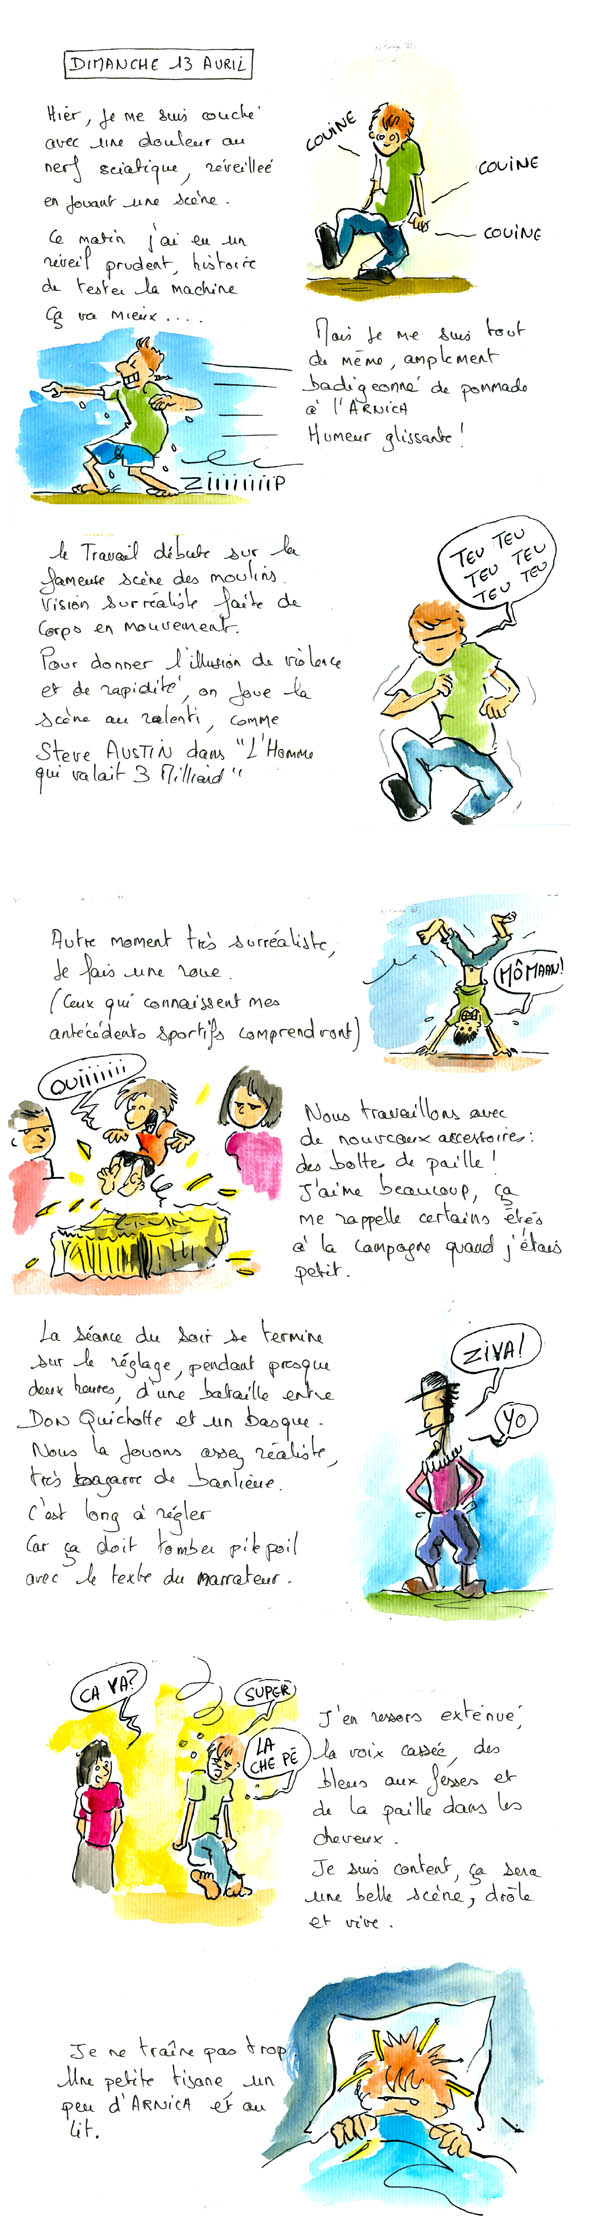 DIMANCHE 13 AVRIL
Hier, je me suis couché
avec une douleur au
nerf sciatique, réveilleé
en jouant une scène.
Ce matin j'ai eu un
réveil prudent, histoire
de tester la machine
Ça va mieux....
COUINE
COUINE
COUINE
Mais je me suis tout
de même, amplement
badigeonné de pommade
à l'ARNICA
Humeur glissante!
Ziiiiiiiip
le Travail débute sur la
fameuse scène des moulins.
Vision surréaliste faite de
Corps en mouvement.
Pour donner l'illusion de violence
et de rapidité, on joue la
scène au ralenti, comme
Steve AUSTIN dans "L'Homme
qui valait 3 Milliard"
TEU TEU
TEU TEU
TEU TEU
Autre moment très surréaliste,
Je fais une roue.
(Ceux qui connaissent mes
antécédents sportifs comprendront)
MÔMAAN!
OUiiiiiii
Nous travaillons avec
de nouveaux accessoires:
des botte de paille!
J'aime beaucoup, ça
me rappelle certains étés
à la campagne quand j'étais
petit.
La séance du soir se termine
sur le réglage, pendant presque
deux heures, d'une bataille entre
DON Quichotte et un basque.
Nous la jouons assez réaliste,
très bagarre de banlieue.
C'est long à régler
Car ça doit tomber pilepoil
avec le texte du narrateur.
ZIVA!
YO
CA VA?
SUPER
LA
CHE PÉ
J'en ressors exténué,
la voix cassée, des
bleus aux fesses et
de la paille dans les
cheveux.
Je suis content, ça sera
une belle scène, drôle
et vive.
Je ne traîne pas trop
Une petite tisane un
peu d'ARNICA et au
lit.